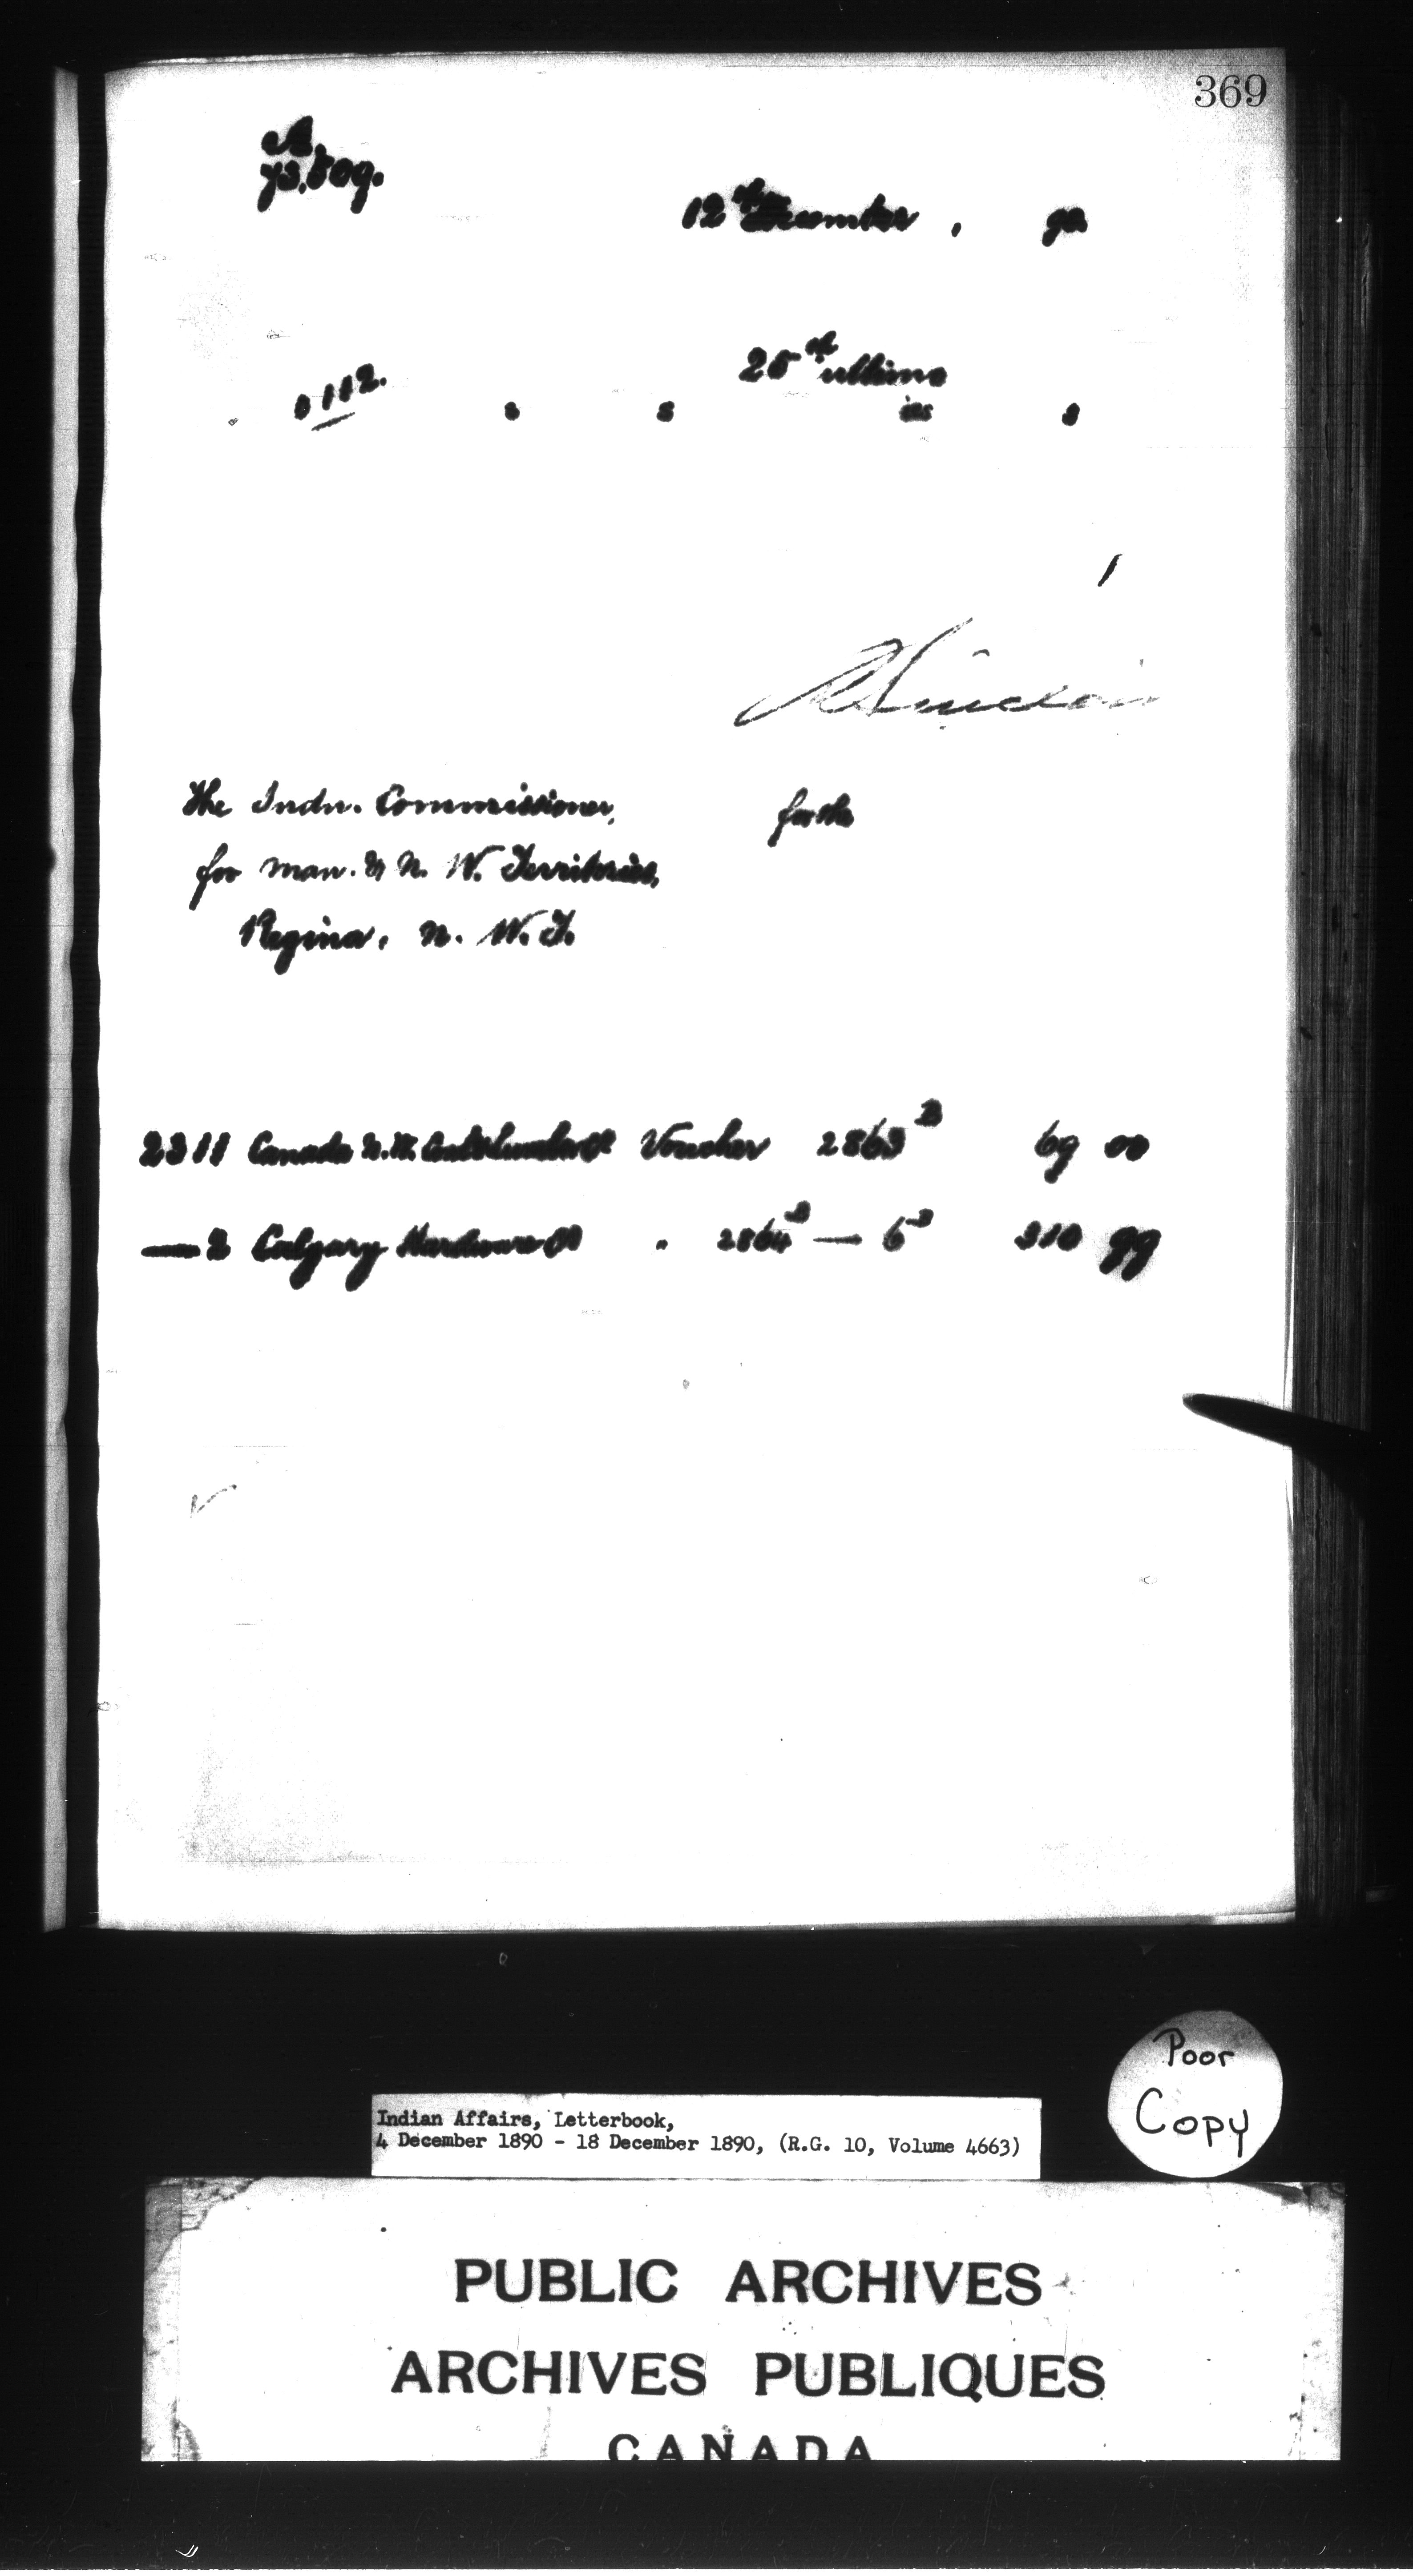 369
A.
73,509.
12th December, 90
25th ultimo
112.
s s ies s
R Sinclair
The Indn. Commissioner, for the
for Man. & N. W. Territories,
Regina, N. W. T.
2311 Canada N.W. Coal & Lumber Co Voucher 2863 B 69 00
— 2 Calgary Hardware Co " 2864 B — 6 B 310 99
Poor
Copy
Indian Affairs, Letterbook,
4 December 1890 - 18 December 1890, (R.G. 10, Volume 4663)
PUBLIC ARCHIVES
ARCHIVES PUBLIQUES
CANADA